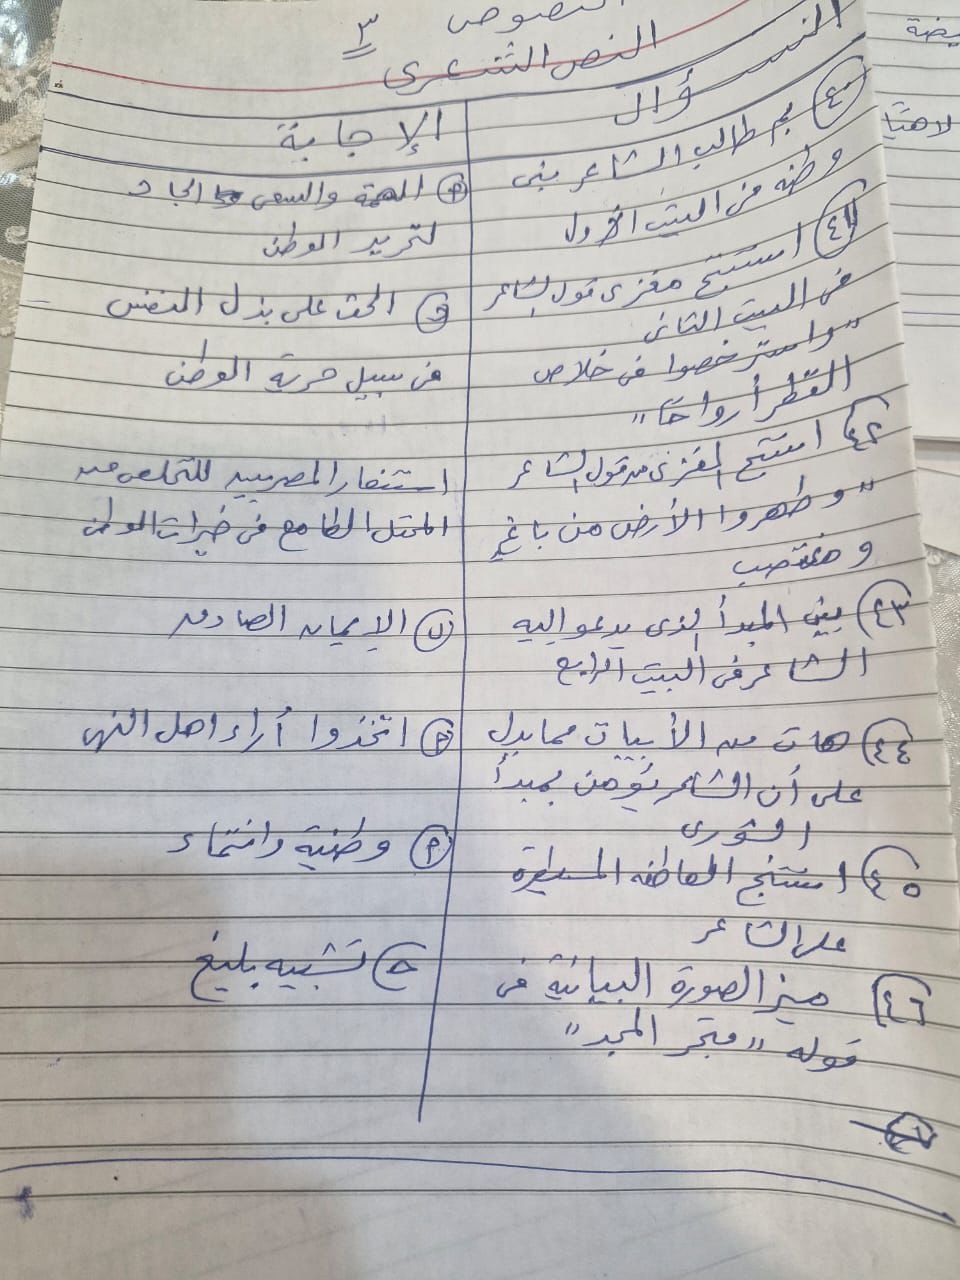 النصوص ٣
النص الشعرى
السؤال
الإجابة
٤٠ بم طالب الشاعر بنى
وطنه فى البيت الأول
أ الهمة والسعى الجاد
لتحرير الوطن
٤١ استنتج مغزى قول الشاعر
فى البيت الثانى
"واسترخصوا فى خلاص
القطر أرواحًا"
ج الحث على بذل النفس
فى سبيل حرية الوطن
٤٢ استنتج المغزى من قول الشاعر
"وطهروا الأرض من باغٍ
ومغتصب
استنفار المصريين للتخلص من
المحتل الطامع فى خيرات الوطن
٤٣ بين المبدأ الذى يدعو إليه
الشاعر فى البيت الرابع
ب الإيمان الصادق
٤٤ هات من الأبيات مما يدل
على أن الشاعر يؤمن بمبدأ
الشورى
أ اتخذوا أراء اهل النهى
٤٥ استنتج العاطفه المسيطرة
على الشاعر
أ وطنية وانتماء
٤٦ ميز الصورة البيانية فى
قوله "متجر المجد"
ج تشبيه بليغ
يضة